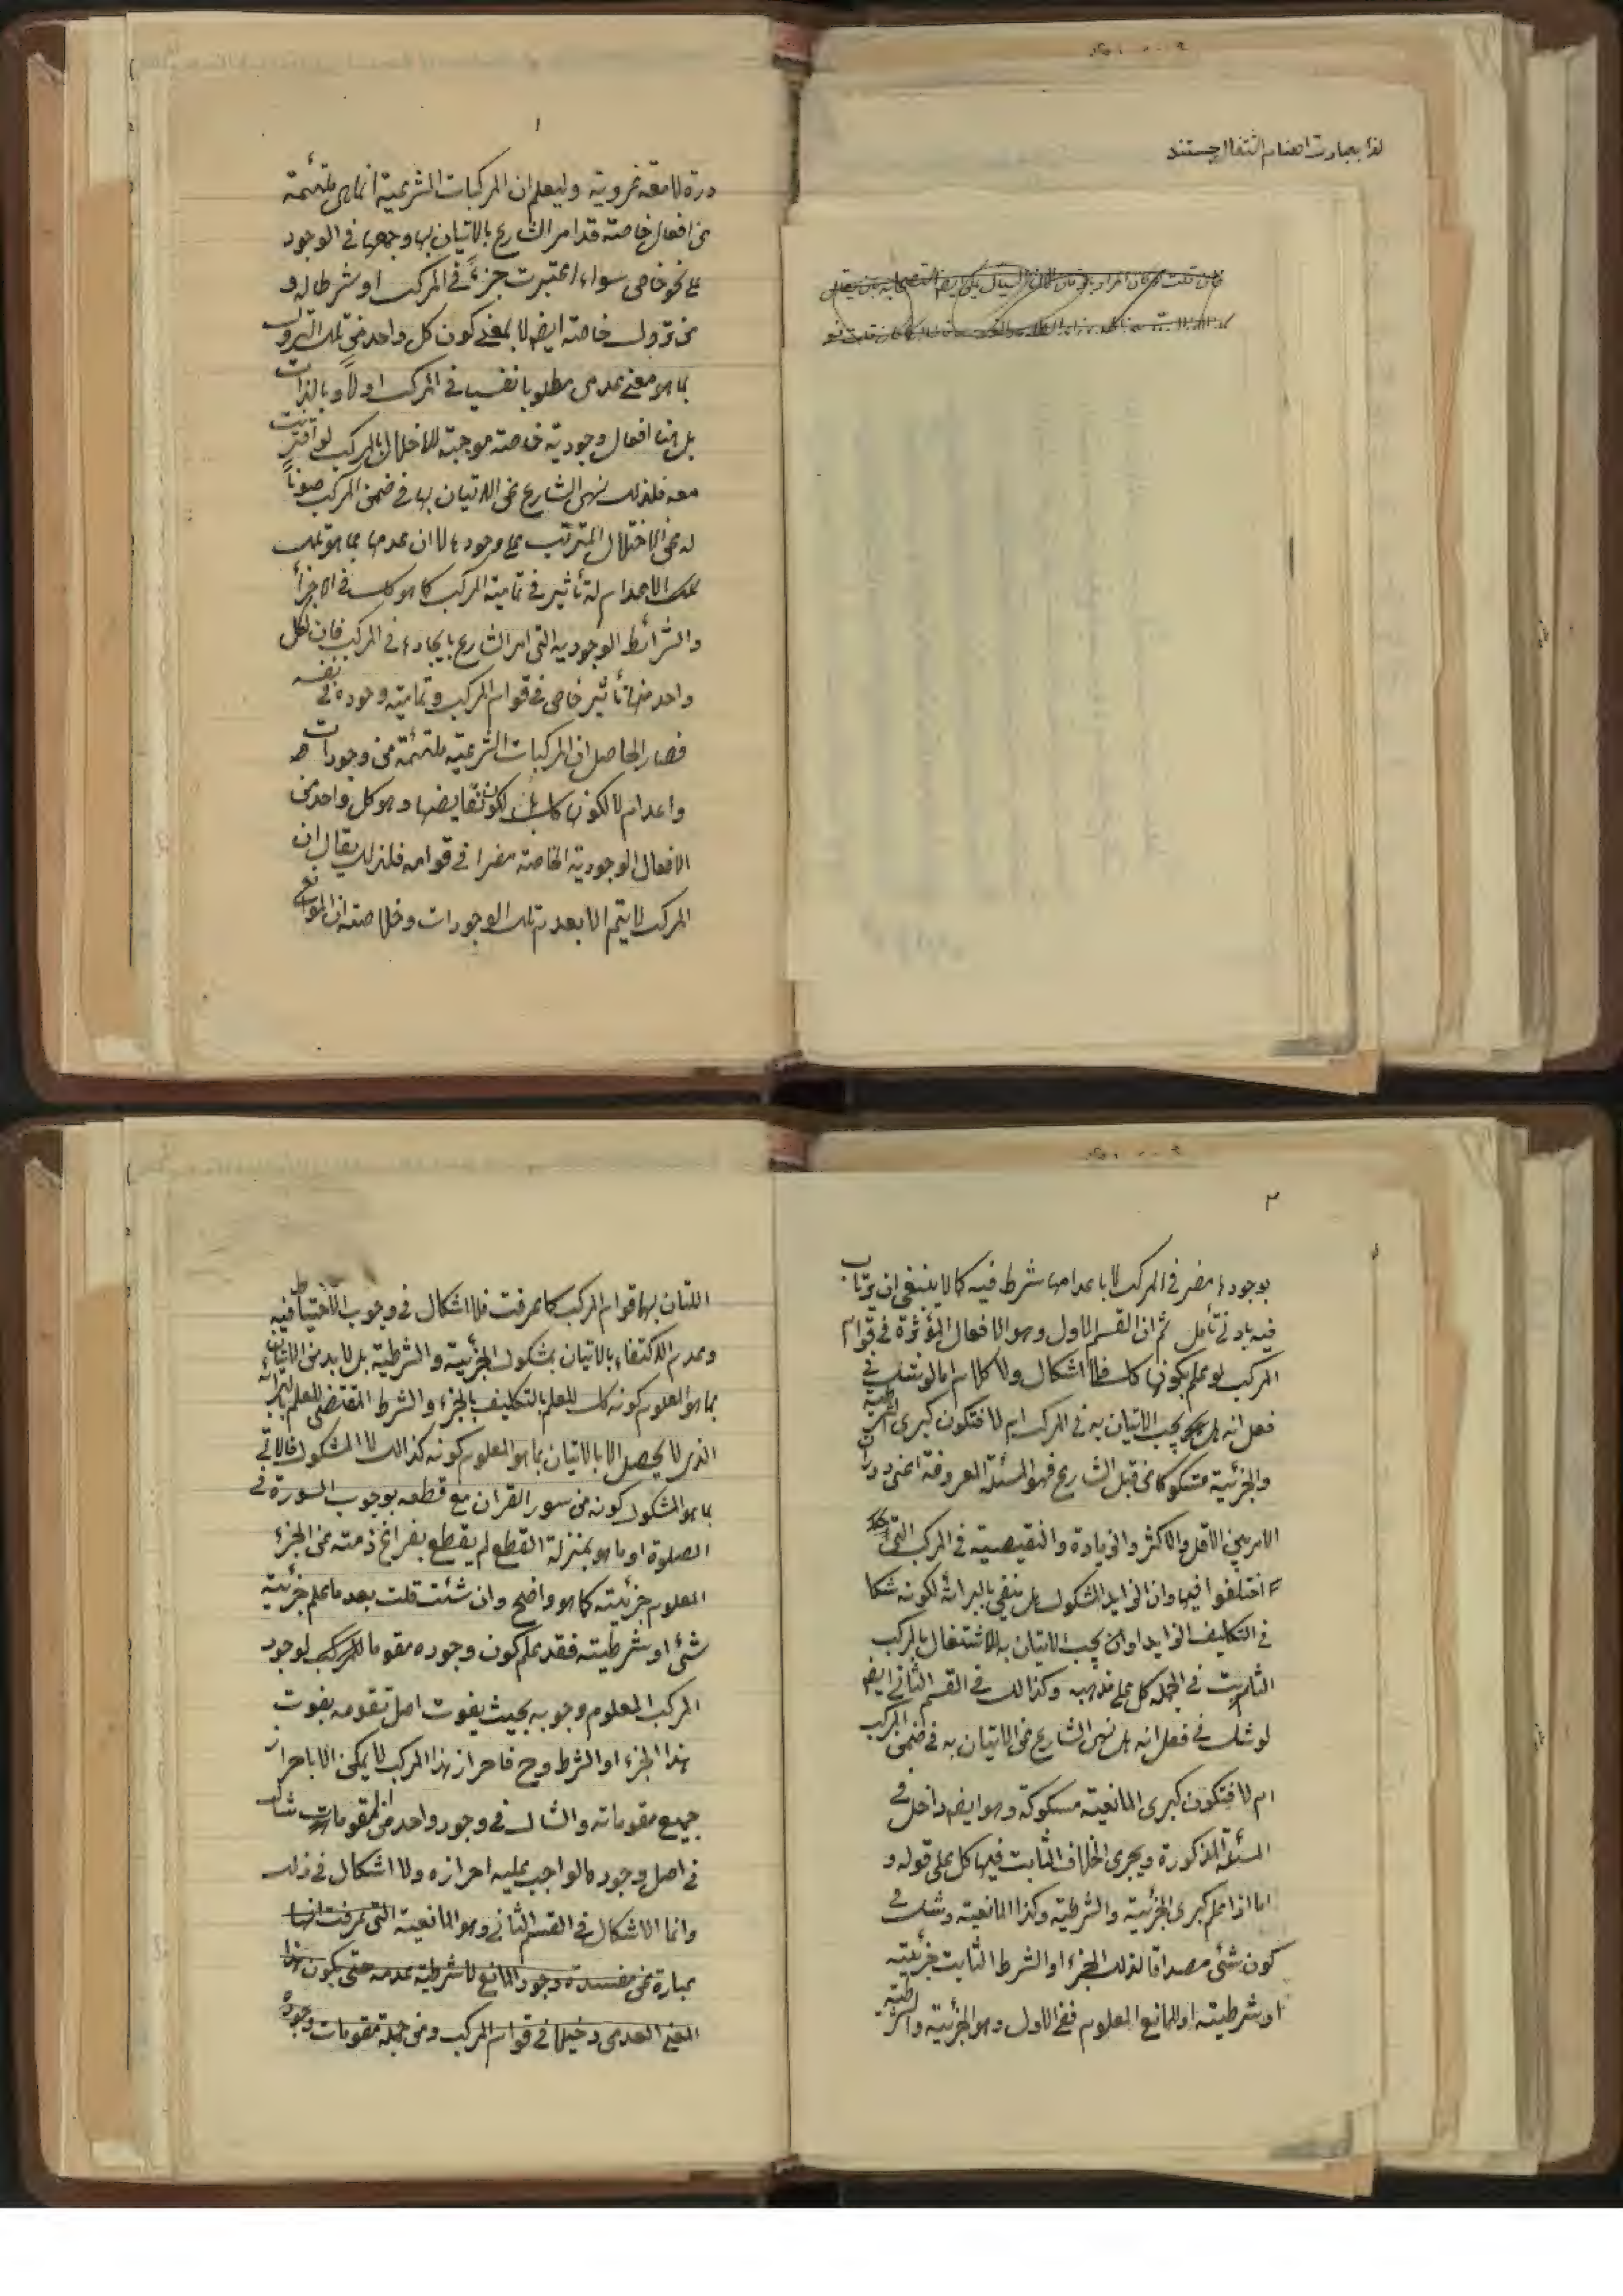 لذا بعبادت اصنام اشتغال جستند
۱
درة لامعة غروية وليعلم ان المركبات الشرعية انما هى ملتئمة
من افعال خاصة قد امر الشارع بالاتيان بها وجمعها فى الوجود
على نحو خاص سواء اعتبرت جزءً فى المركب او شرطا له و
من تروك خاصة ايضا لا بمعنى كون كل واحد من تلك التروك
بما هو معنى عدمى مطلوبا نفسيا فى المركب اولاً وبالذات
بل هنا افعال وجودية خاصة موجبة للاخلال بالمركب لو اقترنت
معه فلذلك نهى الشارع عن الاتيان بها فى ضمن المركب صوناً
له عن الاختلال المترتب على وجودها لا ان عدمها بما هو تلك
تلك الاعدام له تأثير فى تمامية المركب كما هو كك فى الاجزاء
والشرائط الوجودية التى امر الشارع بايجادها فى المركب فان لكل
واحد منها تأثير خاص فى قوام المركب وتمامية وجوده فى نفسه
فصار الحاصل ان المركبات الشرعية ملتئمة من وجودات
واعدام لا لكونها كك بل لكون نقايضها وهو كل واحد من
الافعال الوجودية الخاصة مضرا فى قوامه فلذلك يقال ان
المركب لا يتم الا بعدم تلك الوجودات وخلاصته ان الموانع
۲
بوجودها مضر فى المركب لا باعدامها شرط فيه كما لا ينبغى ان يرتاب
فيه بادنى تأمل ثم ان القسم الاول وهو الافعال المؤثرة فى قوام
المركب لو علم بكونها كك فلا اشكال ولا كلام اما لو شك فى
فعل انه هل يجب الاتيان به فى المركب ام لا فتكون كبرى الشرطية
والجزئية مشكوكا من قبل الشارع فهو المسئلة المعروفة اعنى دوران
الامر بين الاقل والاكثر والزيادة والنقيصة فى المركب التى قد
اختلفوا فيها وان الزايد المشكوك هل ينفى بالبرائة لكونه شكا
فى التكليف الزايد او ان يجب الاتيان به للاشتغال بالمركب
الثابت فى الجملة كل على مذهبه وكذالك فى القسم الثانى ايضا
لو شك فى فعل انه هل نهى الشارع عن الاتيان به فى ضمن المركب
ام لا فتكون كبرى المانعية مسكوكة وهو ايضا داخل فى
المسئلة المذكورة ويجرى الخلاف الثابت فيها كل على قوله و
اما اذا علم كبرى الجزئية والشرطية وكذا المانعية وشك فى
كون شئ مصداقا لذلك الجزء او الشرط الثابت جزئيته
او شرطيته او للمانع المعلوم ففى الاول وهو الجزئية والشرطية
اللتان بهما قوام المركب كما عرفت فلا اشكال فى وجوب الاحتياط فيه
وعدم الاكتفاء بالاتيان بمشكوك الجزئية والشرطية بل لا بد من الاتيان
بما هو المعلوم كونه كك للعلم بالتكليف بالجزء والشرط المقتضى للعلم بالبرائة
الذى لا يحصل الا بالاتيان بما هو المعلوم كونه كذالك لا المشكوك فالاتى
بما هو المشكوك كونه من سور القران مع قطعه بوجوب السورة فى
الصلوة او ما هو بمنزلة القطع لم يقطع بفراغ ذمته عن الجزء
المعلوم جزئيته كما هو واضح وان شئت قلت بعد ما علم جزئية
شئ او شرطيته فقد علم كون وجوده مقوما للمركب لوجود
المركب المعلوم وجوبه بحيث يفوت اصل تقومه بفوت
هذا الجزء او الشرط وح فاحراز هذا المركب لا يمكن الا باحراز
جميع مقوماته والشاك فى وجود واحد من المقومات شاك
فى اصل وجود ما الواجب عليه احرازه ولا اشكال فى ذلك
وانما الاشكال فى القسم الثانى وهو المانعية التى عرفت انها
عبارة عن مفسدة وجود المانع لا شرطية عدمه حتى يكون هذا
المعنى العدمى دخيلا فى قوام المركب ومن جملة مقومات وجوده